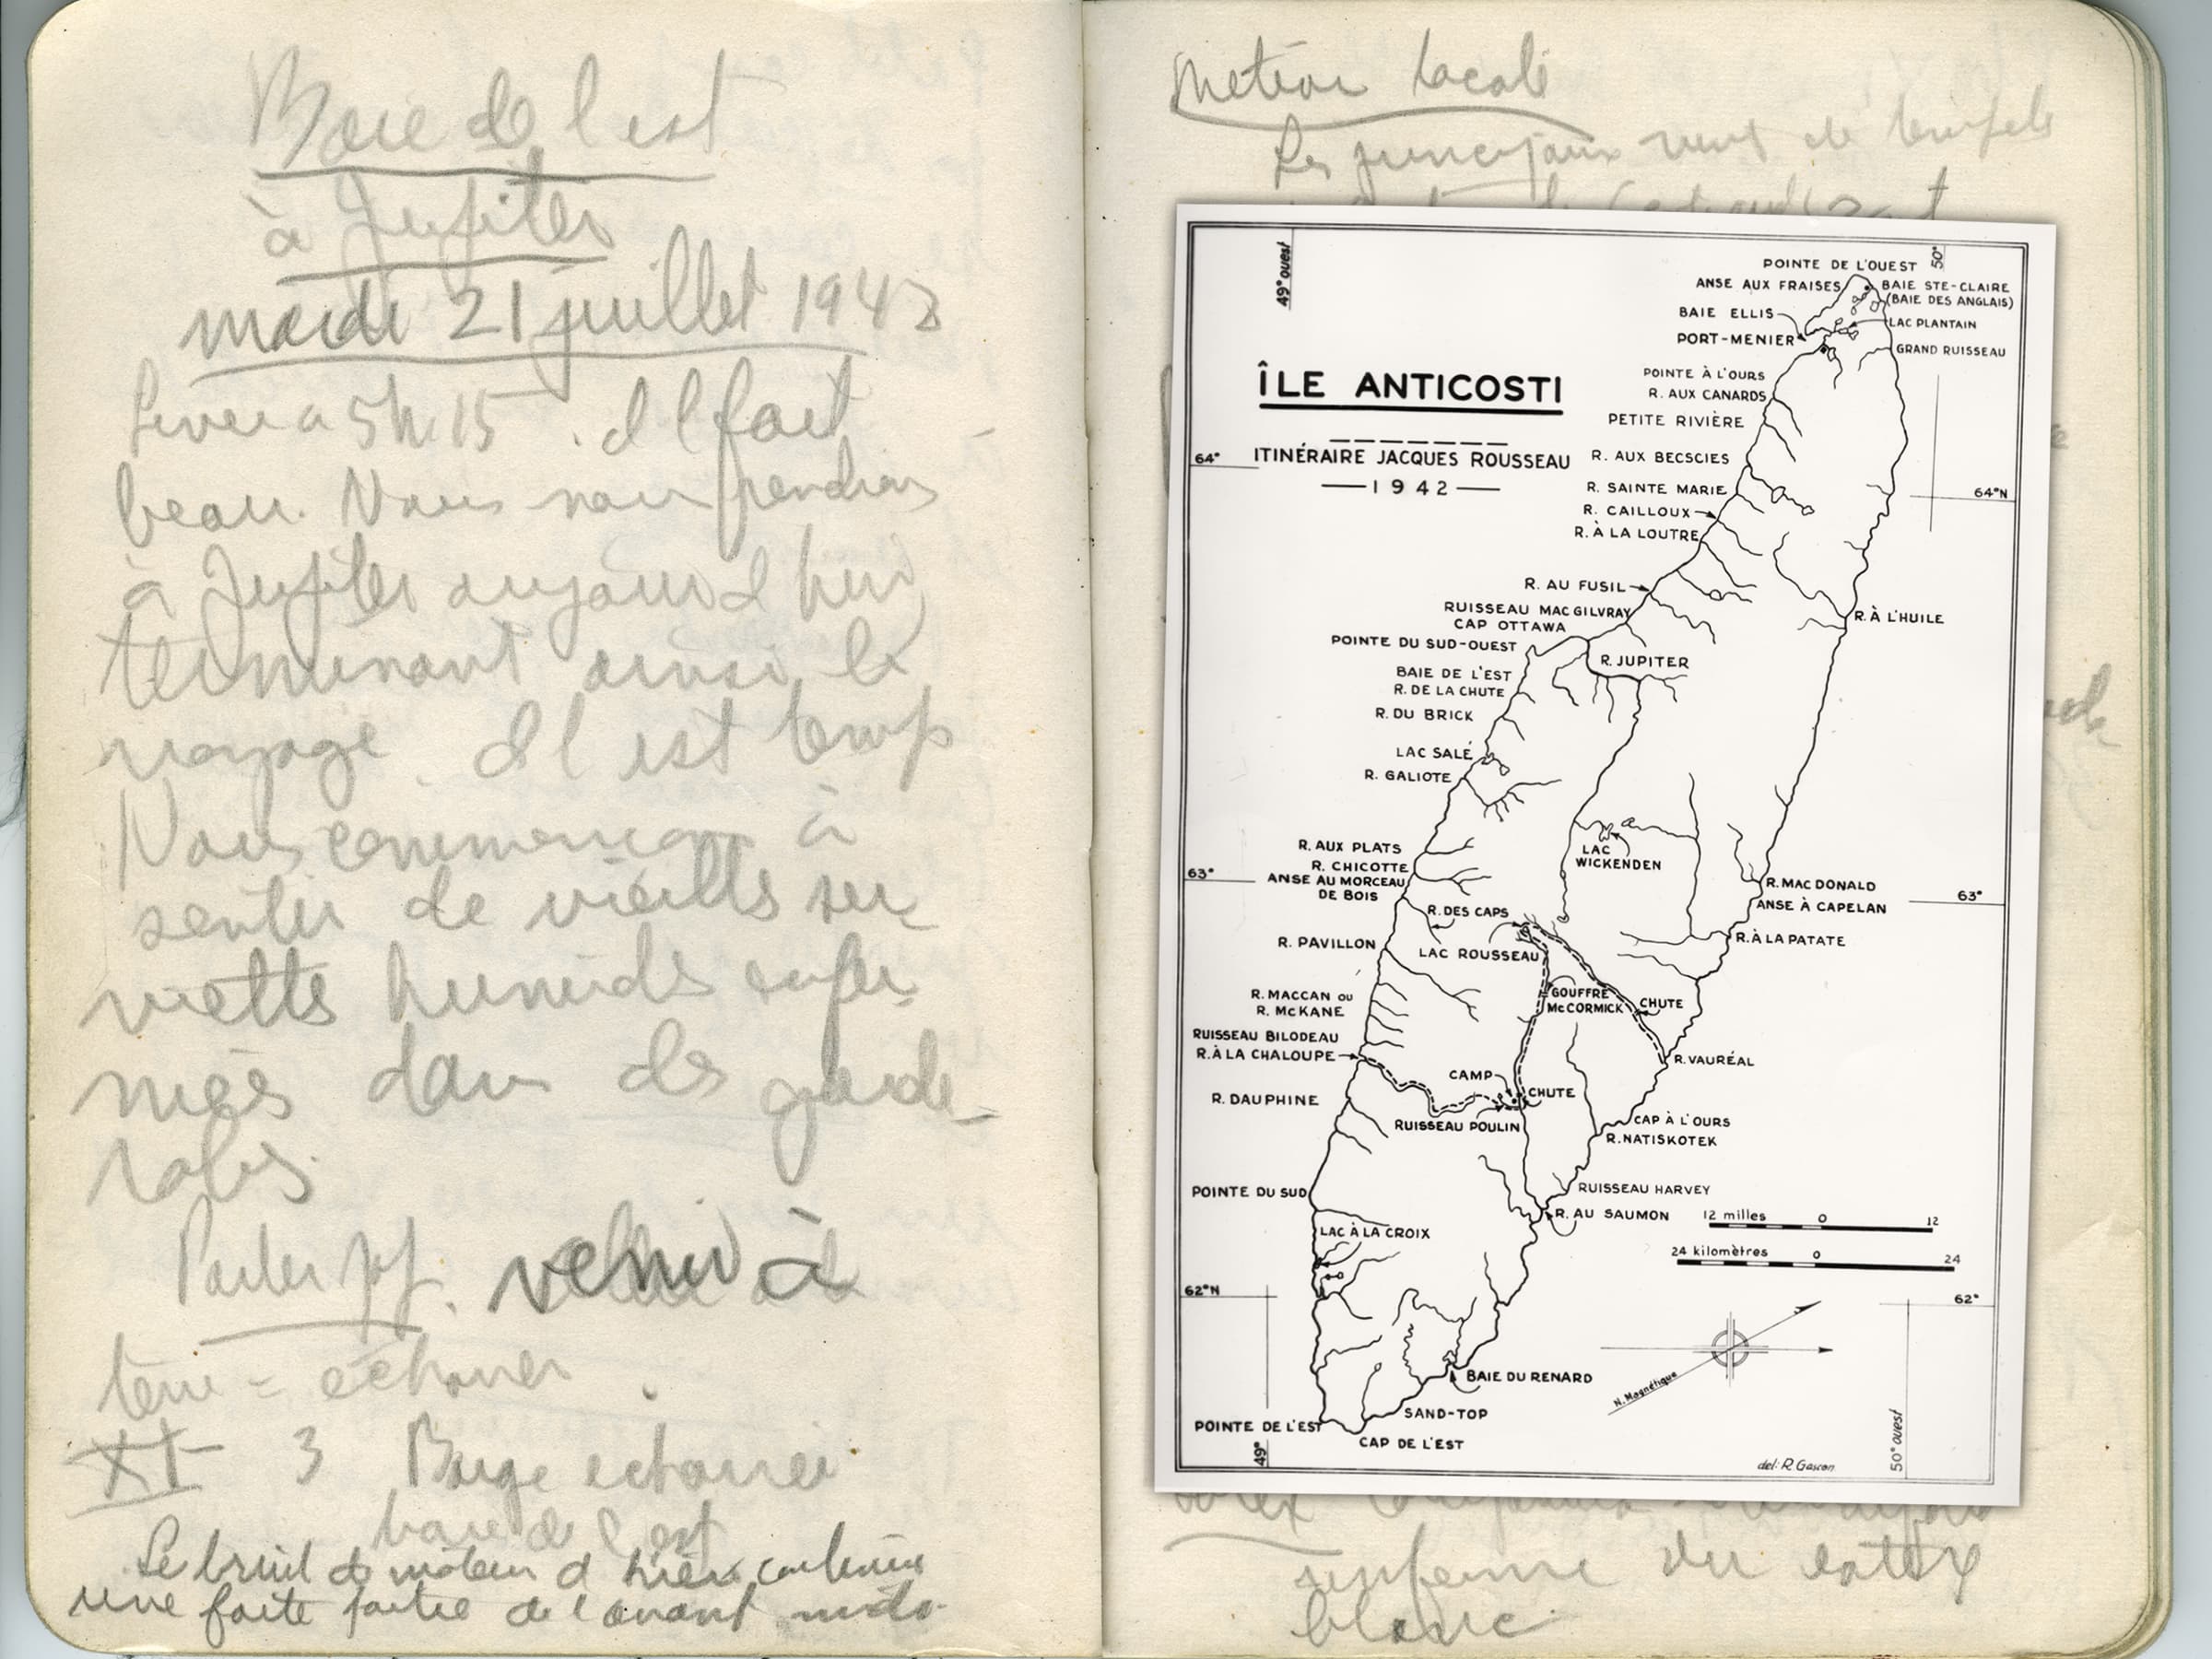 Baie de l est
à Jupiter
mardi 21 juillet 1942
Lever a 5h 15. Il fait
beau. Nous nous rendrons
à Jupiter aujourd hui
terminant ainsi le
voyage. Il est temps
Nous commençons à
sentir de vieilles ser
viettes humides enfer
mées dans des garde-
robes.
Parler pop. venir à
terre = échouer.
XI 3 Barge echouée
baie de l est
Le bruit de moteur d hier continue
une forte partie de l avant midi.
Météor locale
Les principaux vents de tempête
ÎLE ANTICOSTI
ITINÉRAIRE JACQUES ROUSSEAU
— 1942 —
49° ouest
50°
POINTE DE L'OUEST
ANSE AUX FRAISES
BAIE STE-CLAIRE
(BAIE DES ANGLAIS)
BAIE ELLIS
LAC PLANTAIN
PORT-MENIER
GRAND RUISSEAU
POINTE À L'OURS
R. AUX CANARDS
PETITE RIVIÈRE
64°
R. AUX BECSCIES
R. SAINTE MARIE
64°N
R. CAILLOUX
R. À LA LOUTRE
R. AU FUSIL
RUISSEAU MAC GILVRAY
R. À L'HUILE
CAP OTTAWA
POINTE DU SUD-OUEST
R. JUPITER
BAIE DE L'EST
R. DE LA CHUTE
R. DU BRICK
LAC SALÉ
R. GALIOTE
R. AUX PLATS
LAC
WICKENDEN
R. CHICOTTE
63°
ANSE AU MORCEAU
DE BOIS
R. MAC DONALD
63°
ANSE À CAPELAN
R. DES CAPS
R. PAVILLON
LAC ROUSSEAU
R. À LA PATATE
R. MACCAN OU
R. McKANE
GOUFFRE
McCORMICK
CHUTE
RUISSEAU BILODEAU
R. À LA CHALOUPE
R. VAURÉAL
CAMP
CHUTE
R. DAUPHINE
RUISSEAU POULIN
CAP À L'OURS
R. NATISKOTEK
POINTE DU SUD
RUISSEAU HARVEY
R. AU SAUMON
12 milles 0 12
LAC À LA CROIX
24 kilomètres 0 24
62°N
62°
N. Magnétique
BAIE DU RENARD
SAND-TOP
POINTE DE L'EST
CAP DE L'EST
49°
50° ouest
del: R. Gascon
du
blanc